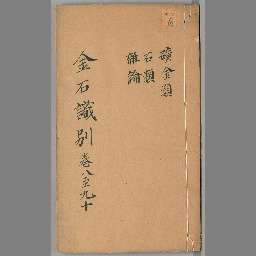 礦金類
石類
雜論
金石識別 卷八至九十